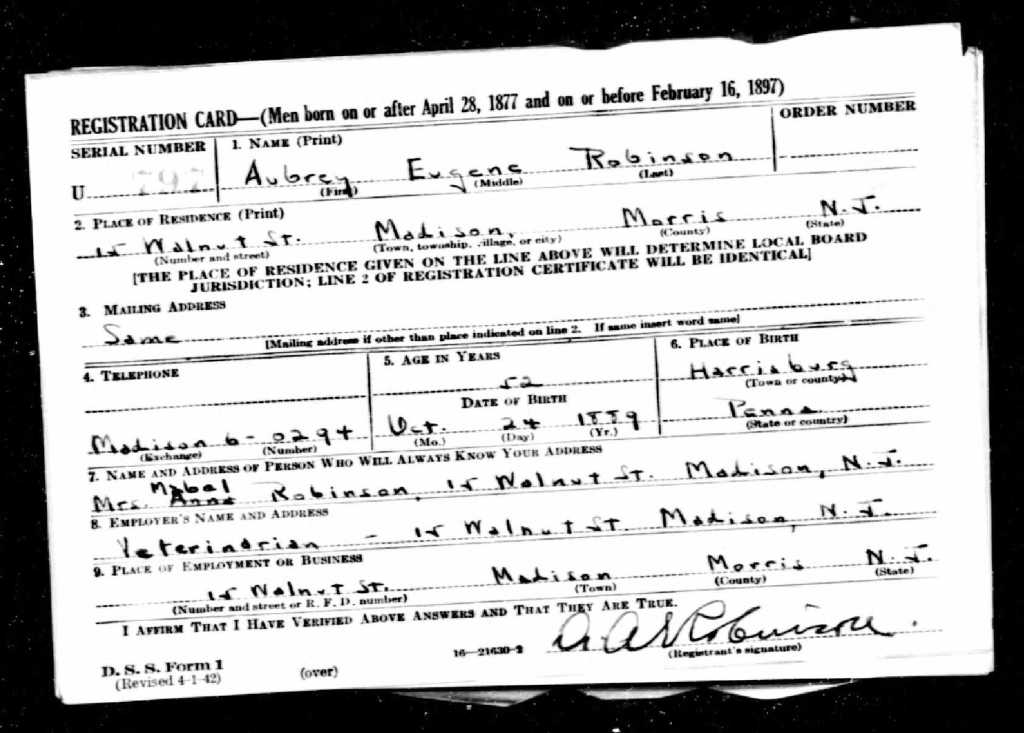 REGISTRATION CARD—(Men born on or after April 28, 1877 and on or before February 16, 1897)
SERIAL NUMBER
1. NAME (Print)
ORDER NUMBER
U 797
Aubrey Eugene Robinson
(First) (Middle) (Last)
2. PLACE OF RESIDENCE (Print)
15 Walnut St. Madison, Morris N.J.
(Number and street) (Town, township, village, or city) (County) (State)
[THE PLACE OF RESIDENCE GIVEN ON THE LINE ABOVE WILL DETERMINE LOCAL BOARD
JURISDICTION; LINE 2 OF REGISTRATION CERTIFICATE WILL BE IDENTICAL]
3. MAILING ADDRESS
Same
[Mailing address if other than place indicated on line 2. If same insert word same]
4. TELEPHONE
Madison 6-0294
(Exchange) (Number)
5. AGE IN YEARS
52
DATE OF BIRTH
Oct. 24 1889
(Mo.) (Day) (Yr.)
6. PLACE OF BIRTH
Harrisburg
(Town or county)
Penna
(State or country)
7. NAME AND ADDRESS OF PERSON WHO WILL ALWAYS KNOW YOUR ADDRESS
Mabel
Mrs. Anna Robinson, 15 Walnut St. Madison, N.J.
8. EMPLOYER'S NAME AND ADDRESS
Veterinarian - 15 Walnut St. Madison, N.J.
9. PLACE OF EMPLOYMENT OR BUSINESS
15 Walnut St. Madison Morris N.J.
(Number and street or R. F. D. number) (Town) (County) (State)
I AFFIRM THAT I HAVE VERIFIED ABOVE ANSWERS AND THAT THEY ARE TRUE.
D. S. S. Form 1
(Revised 4-1-42)
(over)
16—21630-2
Robinson
(Registrant's signature)